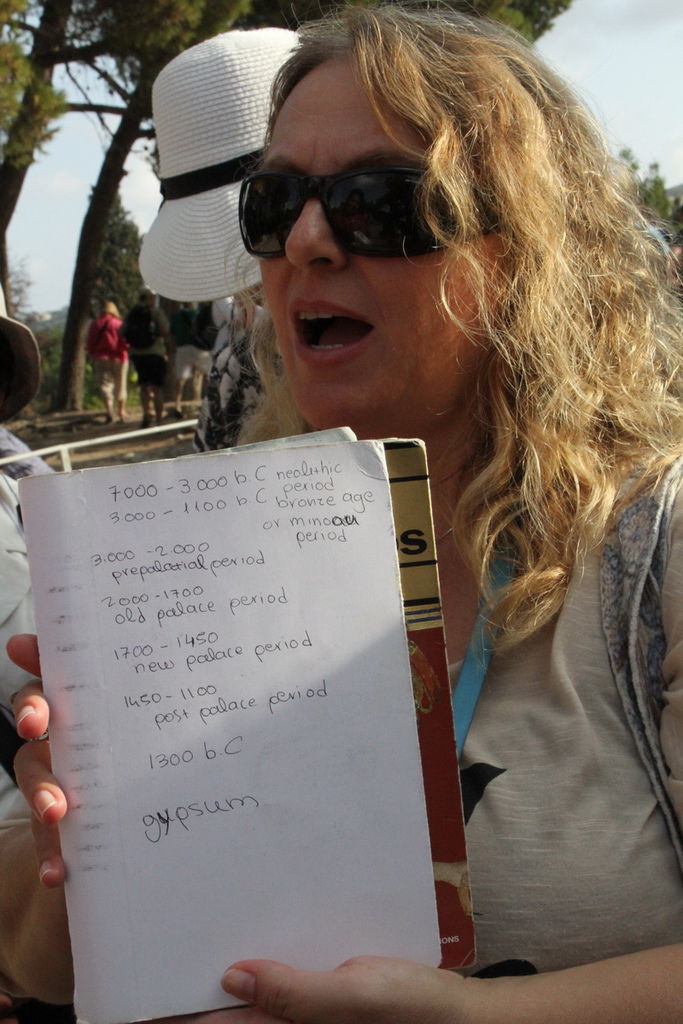 7000 - 3.000 b.C neolithic
period
3.000 - 1100 b.C bronze age
or minoan
period
3.000 - 2.000
prepalatial period
2000 - 1700
old palace period
1700 - 1450
new palace period
1450 - 1100
post palace period
1300 b.C
gypsum
S
ONS